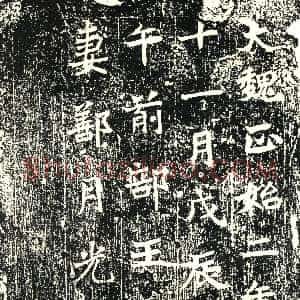 大魏正始二年
十一月戊辰
午前部王
妻鄯月光